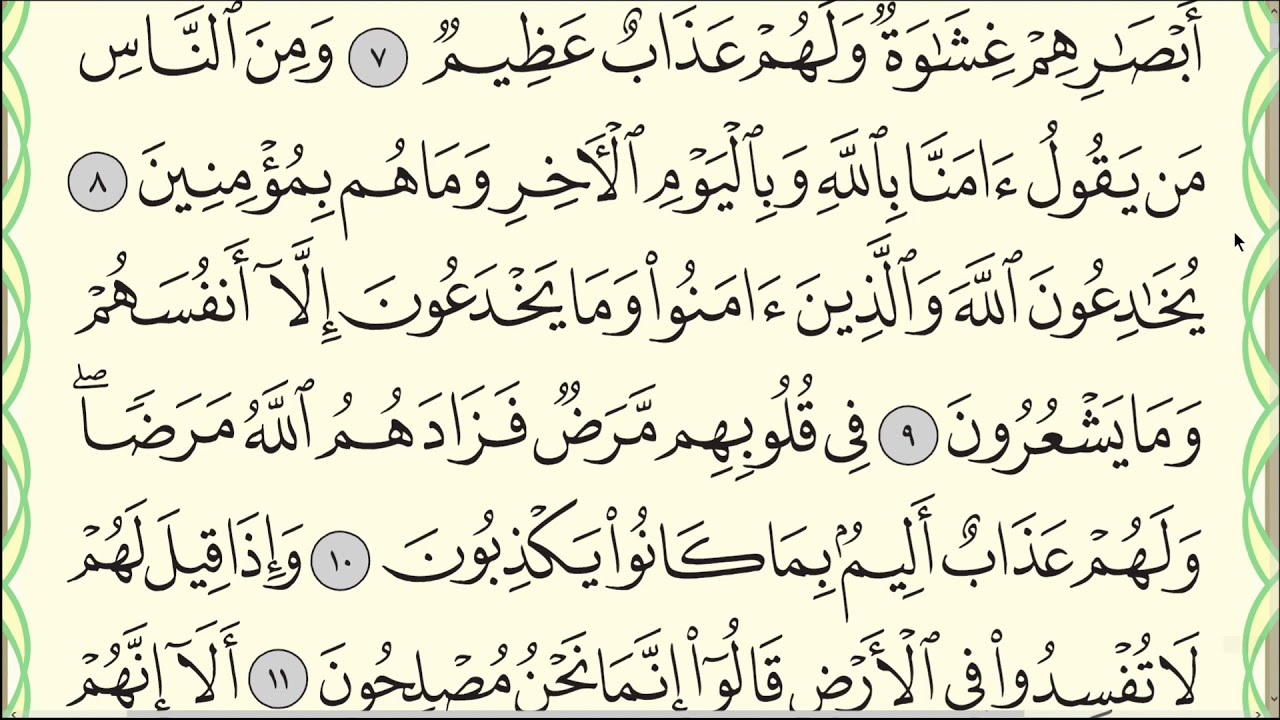 أَبْصَٰرِهِمْ غِشَٰوَةٌ وَلَهُمْ عَذَابٌ عَظِيمٌ ٧ وَمِنَ ٱلنَّاسِ
مَن يَقُولُ ءَامَنَّا بِٱللَّهِ وَبِٱلْيَوْمِ ٱلْأَخِرِ وَمَا هُم بِمُؤْمِنِينَ ٨
يُخَٰدِعُونَ ٱللَّهَ وَٱلَّذِينَ ءَامَنُوا۟ وَمَا يَخْدَعُونَ إِلَّآ أَنفُسَهُمْ
وَمَا يَشْعُرُونَ ٩ فِى قُلُوبِهِم مَّرَضٌ فَزَادَهُمُ ٱللَّهُ مَرَضًا ۖ
وَلَهُمْ عَذَابٌ أَلِيمٌۢ بِمَا كَانُوا۟ يَكْذِبُونَ ١٠ وَإِذَا قِيلَ لَهُمْ
لَا تُفْسِدُوا۟ فِى ٱلْأَرْضِ قَالُوٓا۟ إِنَّمَا نَحْنُ مُصْلِحُونَ ١١ أَلَآ إِنَّهُمْ